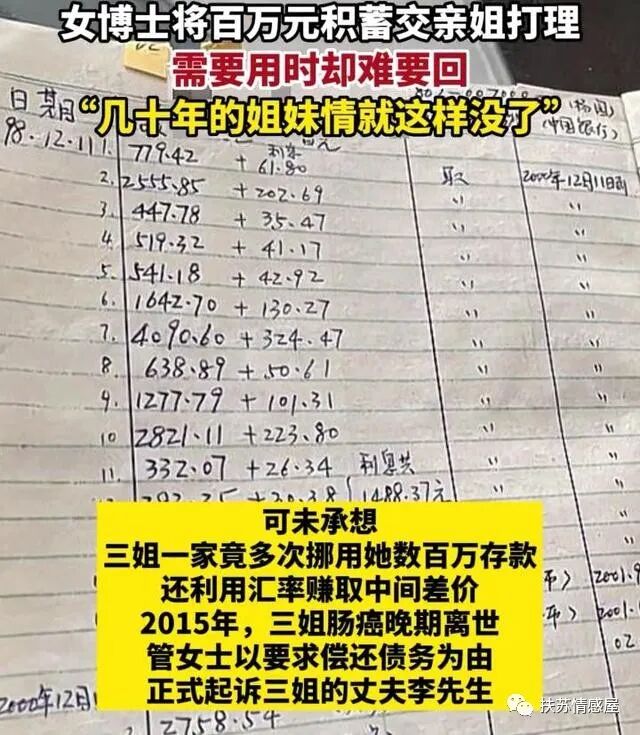 女博士将百万元积蓄交亲姐打理
需要用时却难要回
“几十年的姐妹情就这样没了”
日期
(中国银行)
98.12.11 1. 779.42 + 61.80 取 2000年12月11日
2. 2555.85 + 202.69 〃 〃
3. 447.78 + 35.47 〃 〃
4. 519.32 + 41.17 〃 〃
5. 541.18 + 42.92 〃 〃
6. 1642.70 + 130.27 〃 〃
7. 4090.60 + 324.47 〃 〃
8. 638.89 + 50.61 〃 〃
9. 1277.79 + 101.31 〃 〃
10 2821.11 + 223.80 〃 〃
11. 332.07 + 26.34 利息共 〃 〃
1488.37元
可未承想
三姐一家竟多次挪用她数百万存款
还利用汇率赚取中间差价
2015年，三姐肠癌晚期离世
管女士以要求偿还债务为由
正式起诉三姐的丈夫李先生
2001.9
2001.
02
2000年12月
2758.54
扶苏情感屋